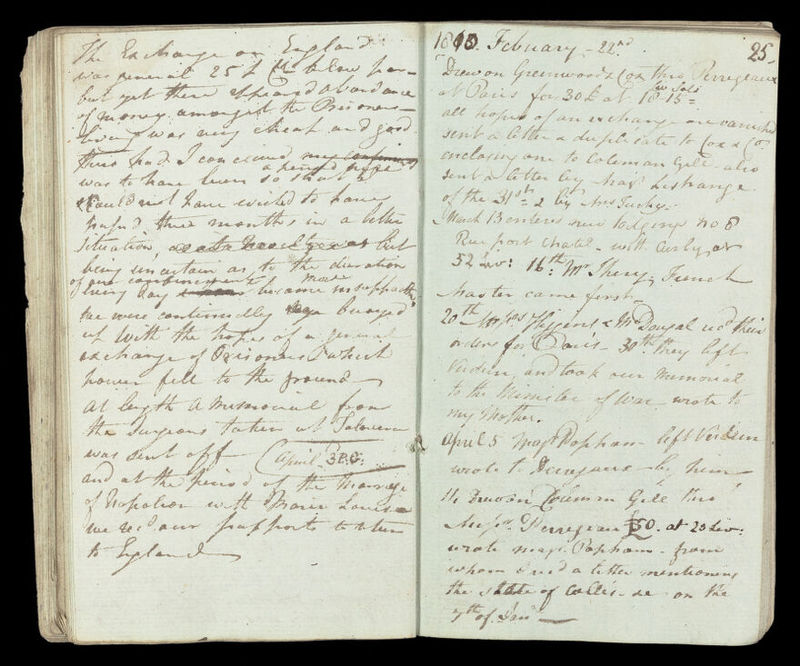 The Exchange on England
was general 25 L below par
but yet there appeared abundance
of money amongst the Prisoners
living was very cheap and good.
had I conceived my confinement
was to have been so short a period here
I could not have wished to have
passed three months in a better
situation, but
being uncertain as to the duration
of our confinement
every day became more insupportable
we were continually buoyed
up with the hopes of a general
exchange of Prisoners which
however fell to the ground
at length a memorial from
the Surgeons taken at Talavera
was sent off (April 3
and at the period of the Marriage
of Napoleon with Maria Louisa
we recd our passports to return
to England
1810. February 22nd 25.
Drew on Greenwood & Cox thro Perregeaux
at Paris for 30£ at 18 15
all hopes of an exchange are vanished
sent a letter a duplicate to Cox & Co.
enclosing one to Coleman Gell also
sent a letter by Majr Lestrange
of the 31st & by Mrs Tuckey.
March 13 entered new lodgings No 8
Rue pont chatel with at
52 Liv: 16th Mr Thery, French
Master came first
20th Messrs Higgins & McDougal recd their
orders for Paris 30th they left
Verdun, and took our Memorial
to the Minister of War wrote to
my Mother.
April 5 Majr Popham left Verdun
wrote to by him
Drew on Coleman Gell thro
Messrs Perregeau £50. at 20 Liv:
wrote Majr Popham from
whom I recd a letter mentioning
the state of on the
7th of